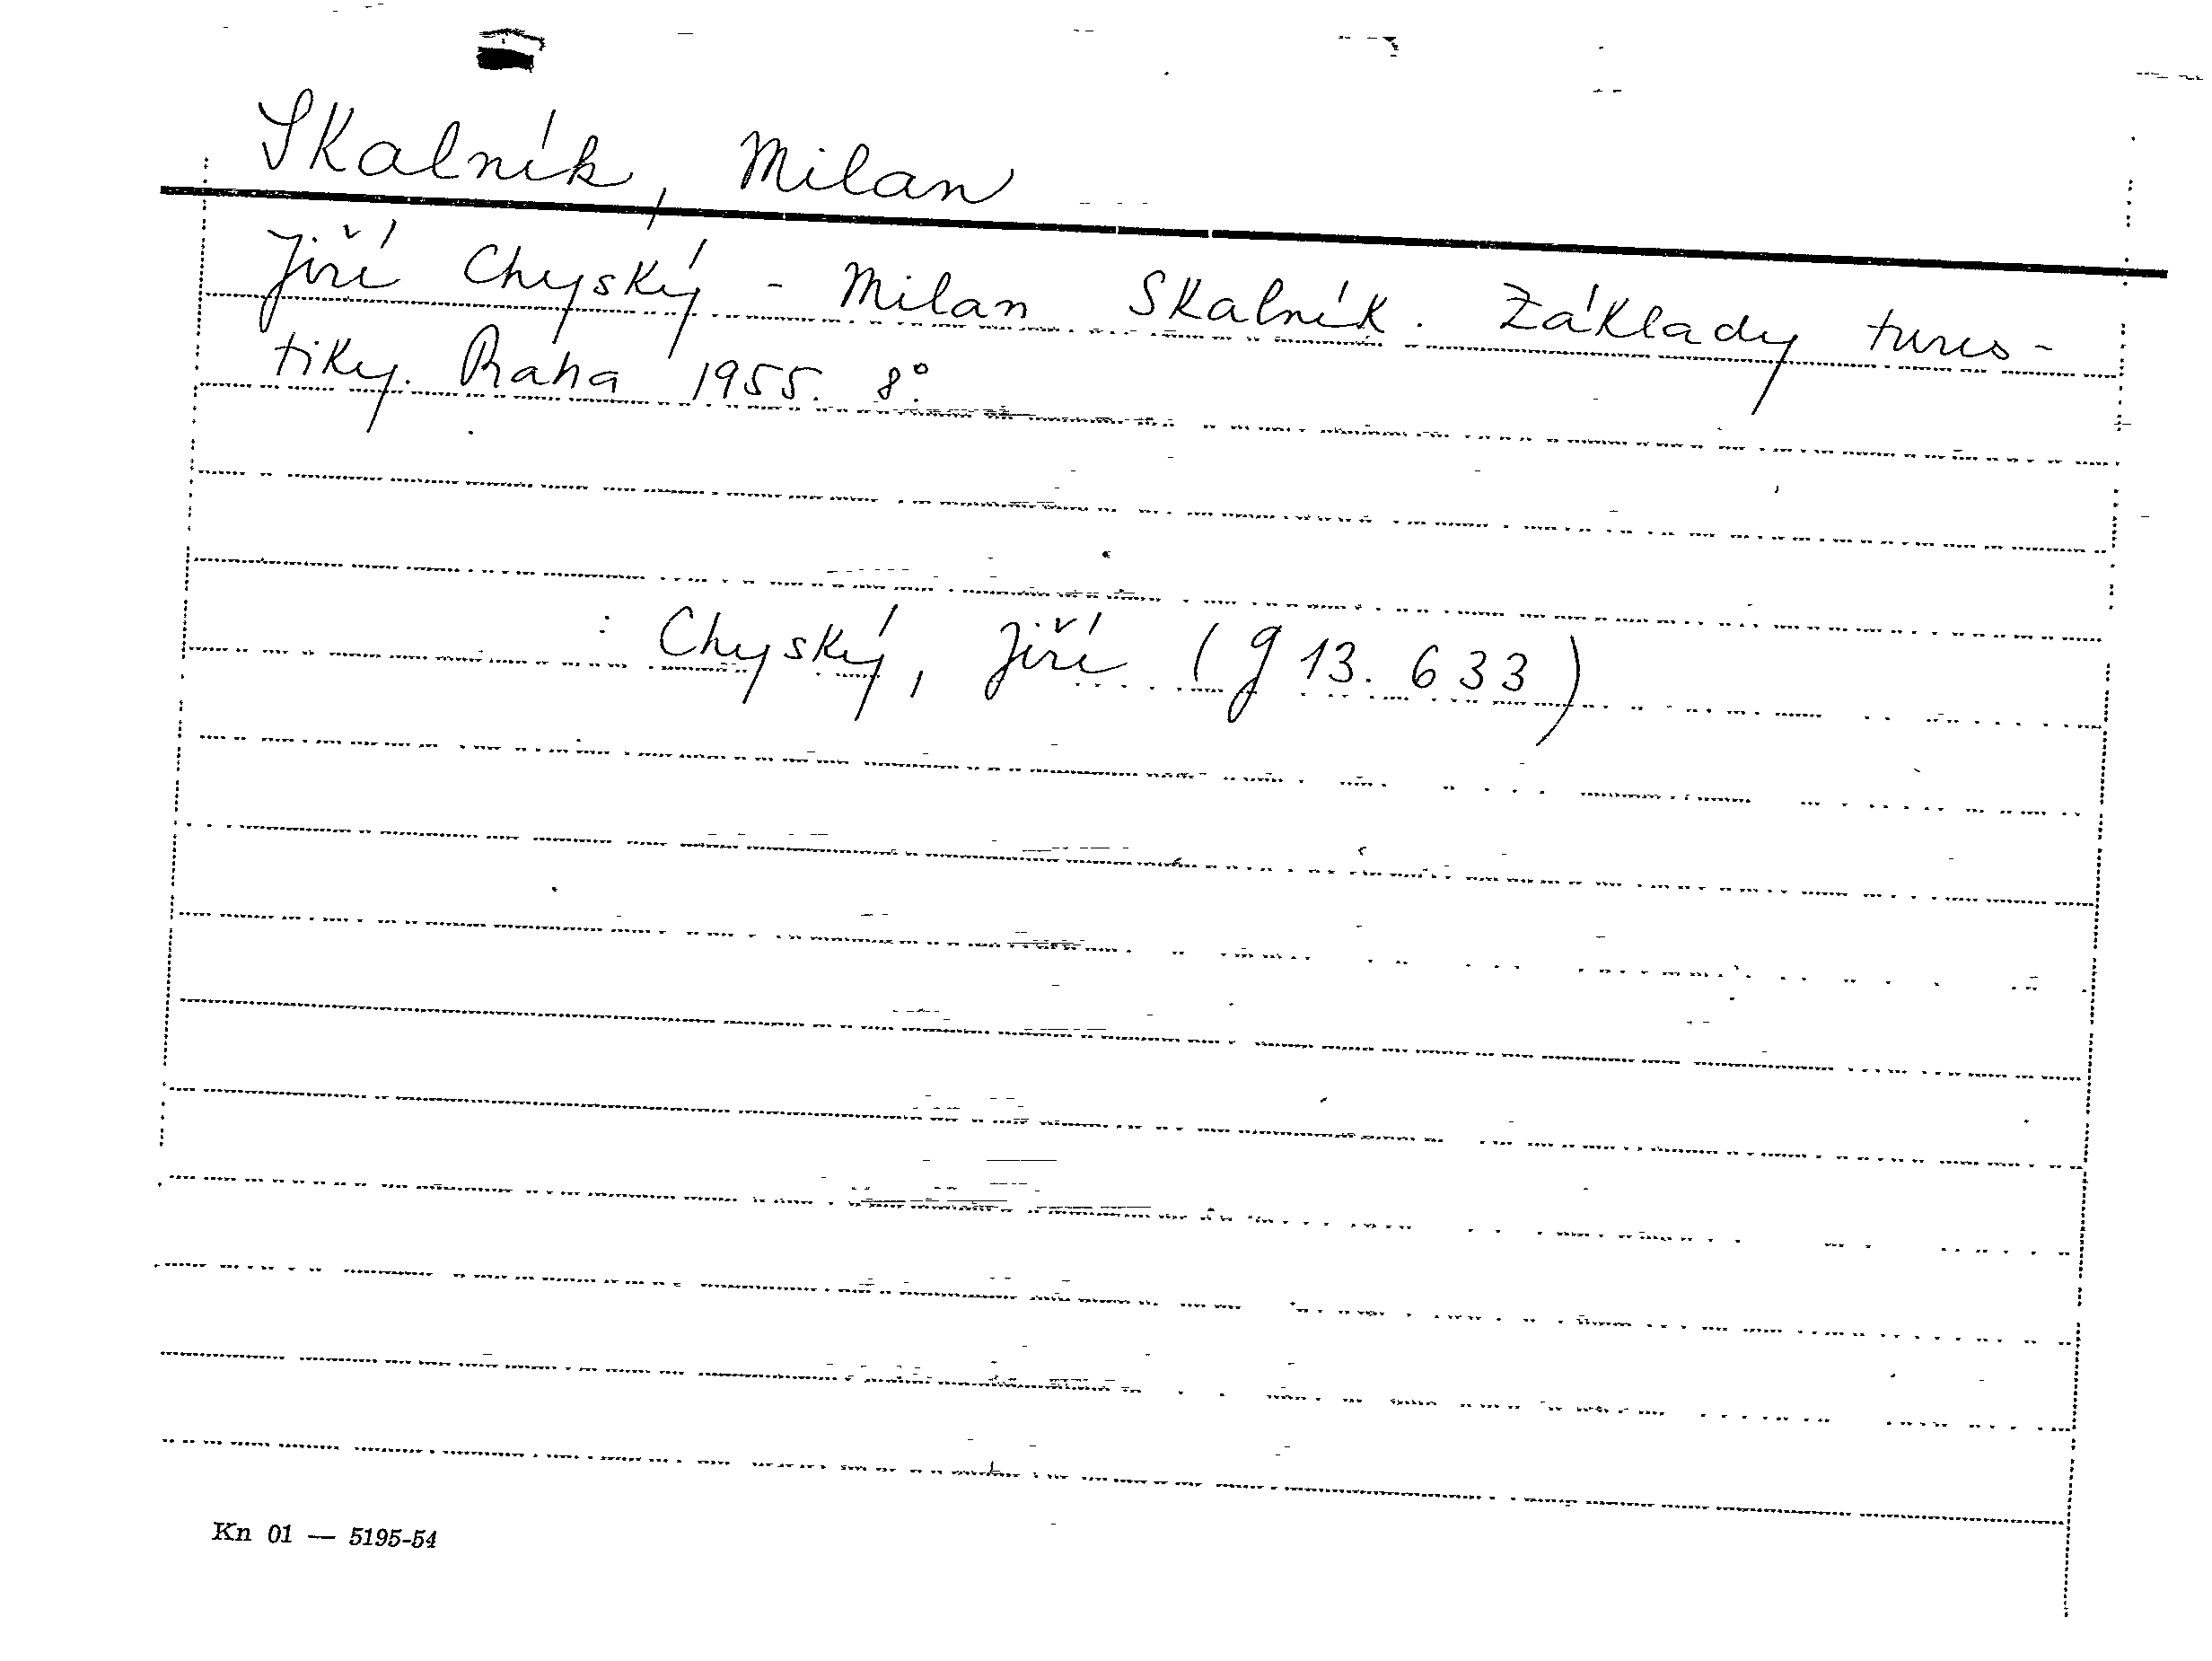 Skalník, Milan
Jiří Chyský - Milan Skalník. Základy turis-
tiky. Praha 1955. 8°.
: Chyský, Jiří (g 13.633)
Kn 01 — 5195-54